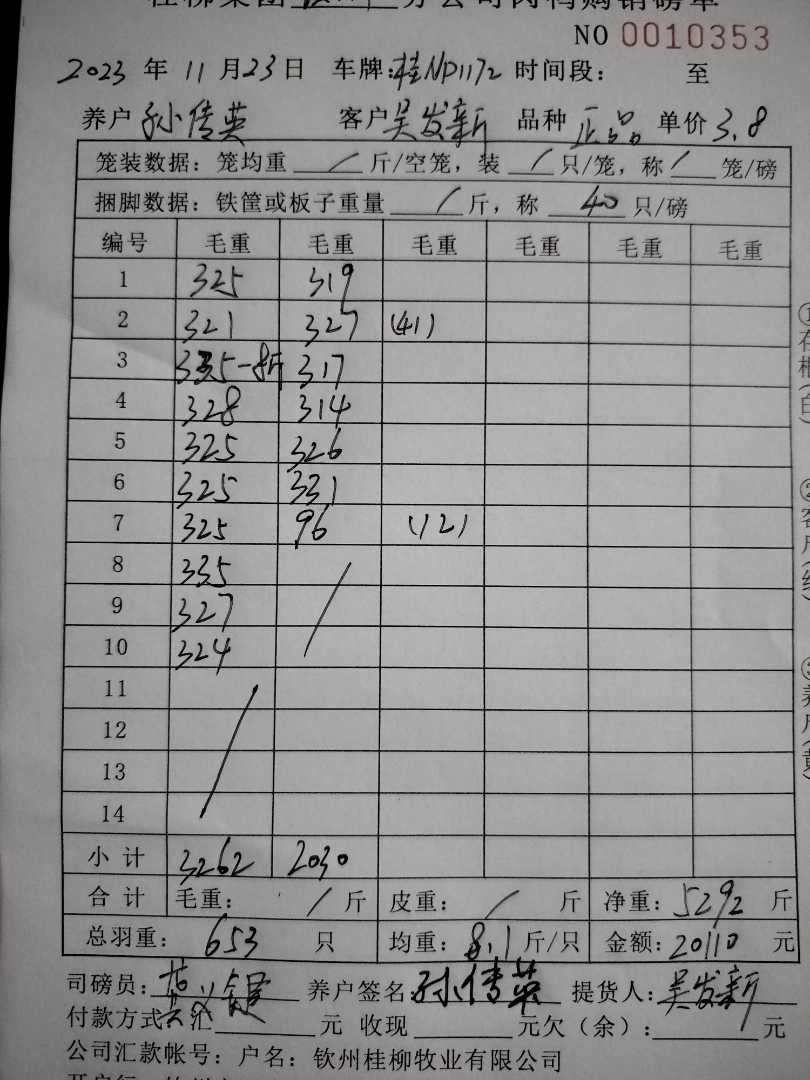 NO 0010353
2023 年 11 月 23 日 车牌:桂ND1172 时间段: 至
养户 孙传英 客户 吴发新 品种 正品 单价 3.8
笼装数据: 笼均重 / 斤/空笼, 装 / 只/笼, 称 / 笼/磅
捆脚数据: 铁筐或板子重量 / 斤, 称 40 只/磅
编号 毛重 毛重 毛重 毛重 毛重 毛重
1 325 319
2 321 327 (41)
3 335-8斤 317
4 328 314
5 325 326
6 325 331
7 325 96 (12)
8 335
9 327
10 324
11
12
13
14
小 计 3262 2030
合 计 毛重: / 斤 皮重: / 斤 净重: 5292 斤
总羽重: 653 只 均重: 8.1 斤/只 金额: 20110 元
司磅员: 养户签名 孙传英 提货人: 吴发新
付款方式: 汇 元 收现 元欠(余): 元
公司汇款帐号: 户名: 钦州桂柳牧业有限公司